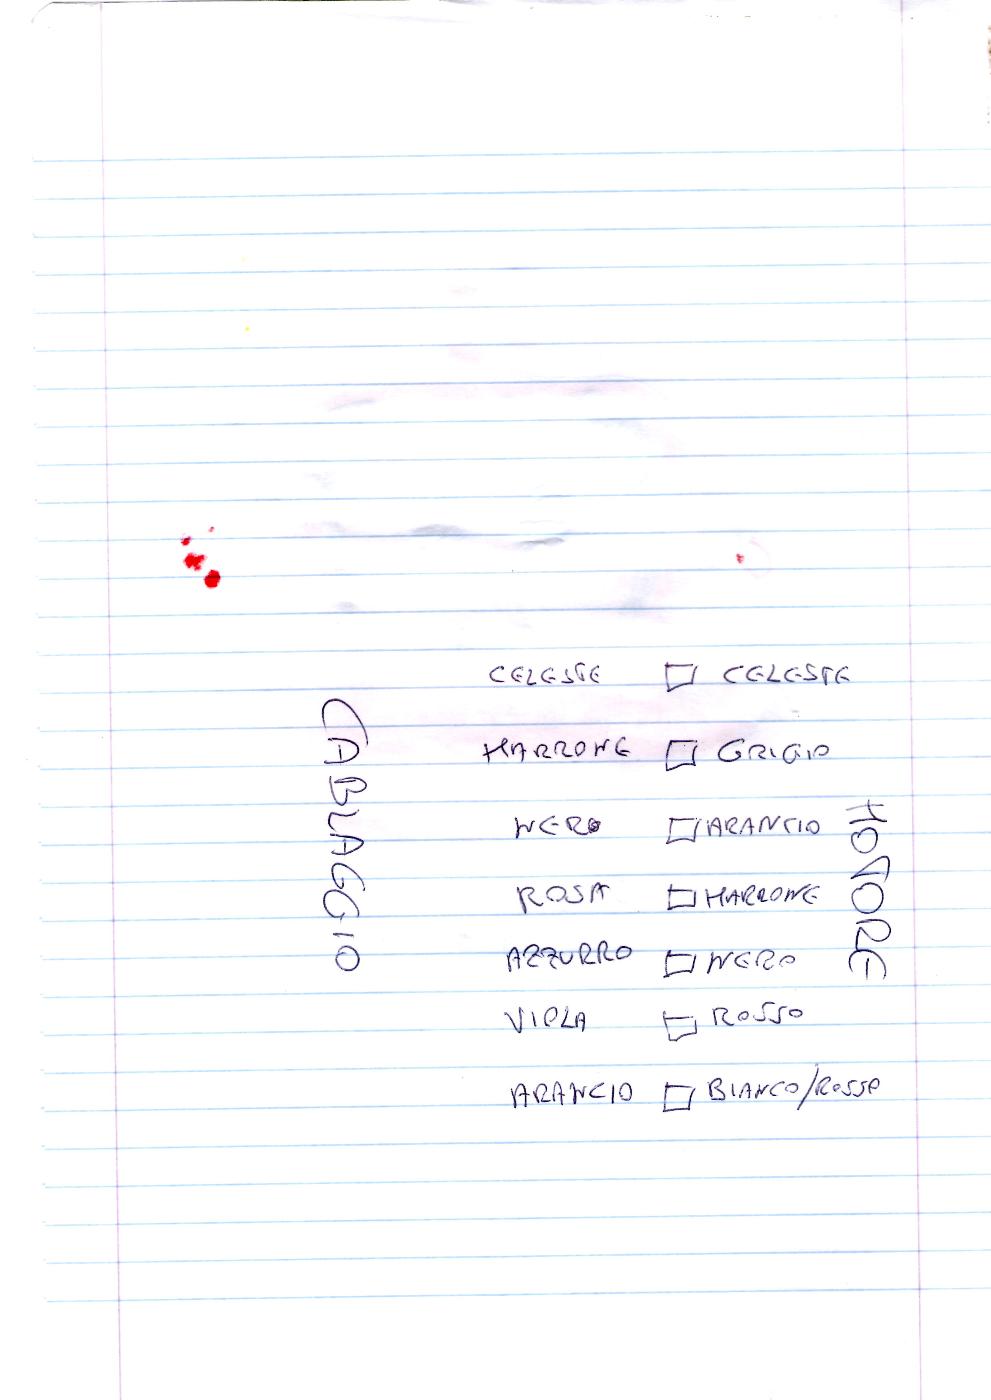 CELESTE CELESTE
MARRONE GRIGIO
NERO ARANCIO
ROSA MARRONE
AZZURRO NERO
VIOLA ROSSO
ARANCIO BIANCO/ROSSO
CABLAGGIO
MOTORE